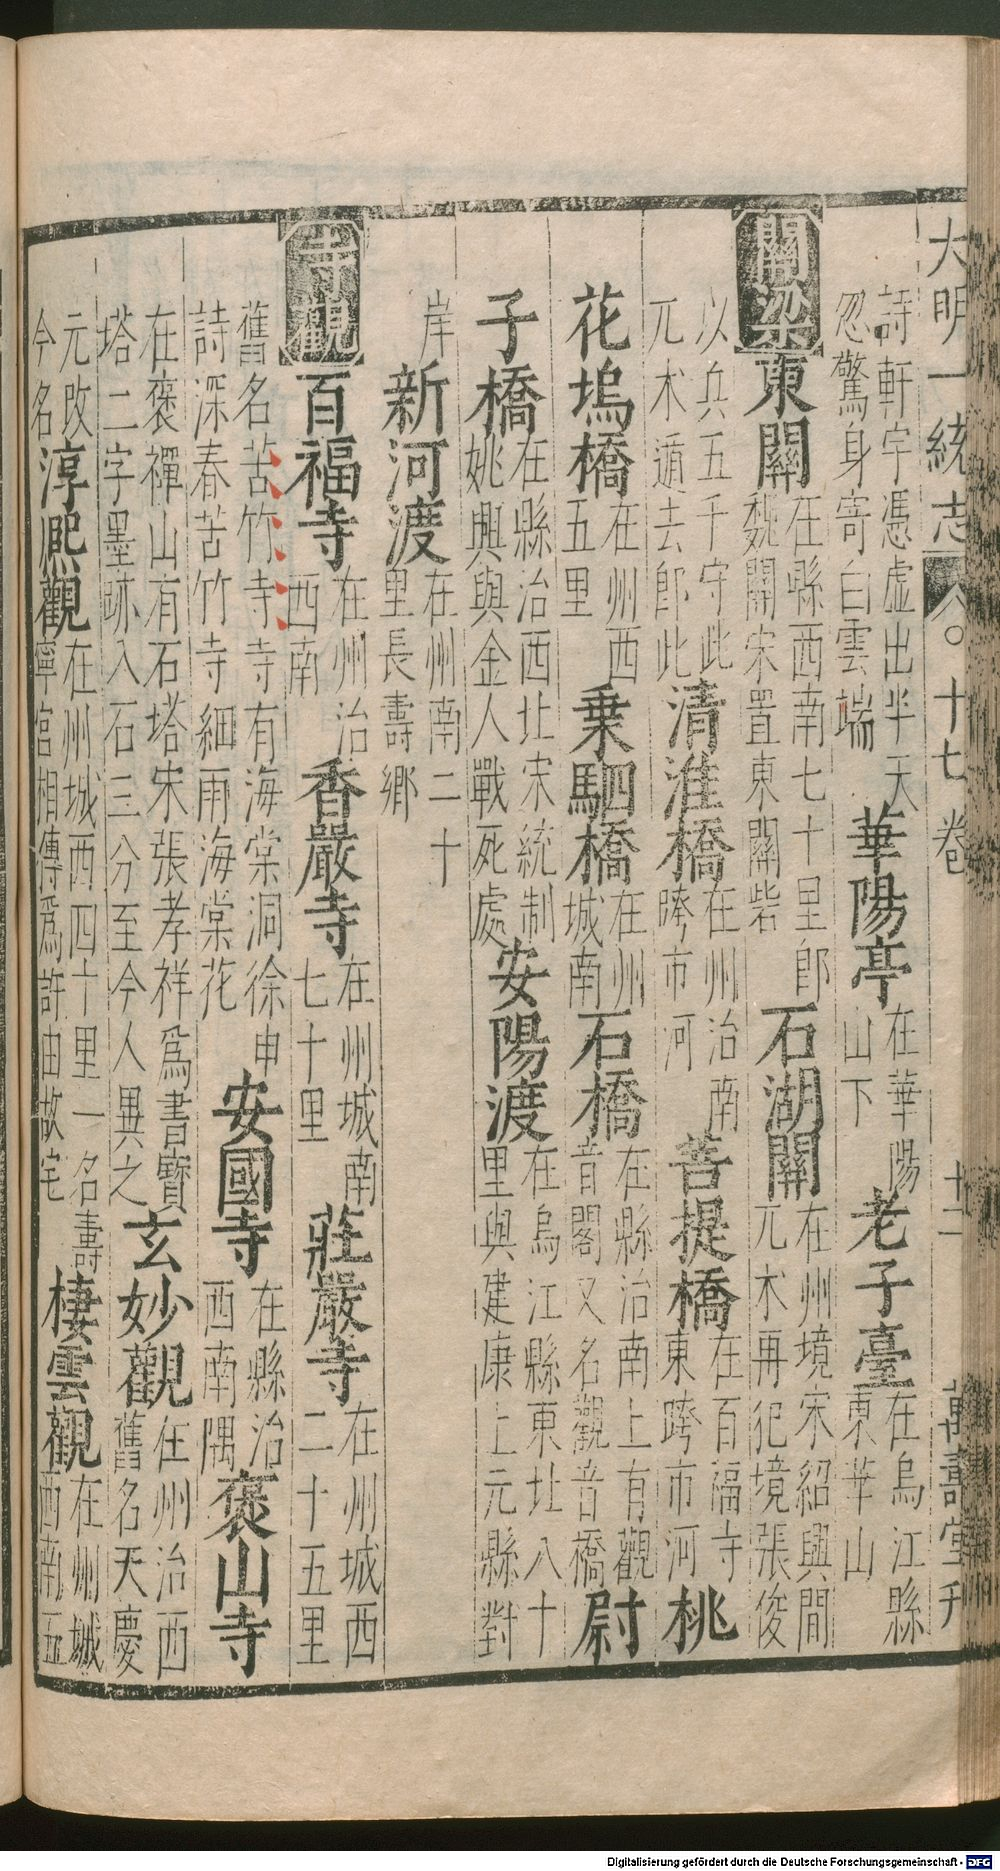 大明一統志 〇十七卷 十一 萬壽堂刊
詩軒宇憑虛出半天忽驚身寄白雲端 華陽亭 在華陽山下 老子臺 在烏江縣東華山
關梁 東關 在縣西南七十里郎魏關宋置東關砦 石湖關 在州境宋紹興間兀朮再犯境張俊
以兵五千守此兀朮遁去郎此 清淮橋 在州治南跨市河 菩提橋 在百福寺東跨市河 桃
花塢橋 在州西五里 乗駟橋 在州城南 石橋 在縣治南上有觀音閣又名觀音橋 尉
子橋 在縣治西北宋統制姚興與金人戰死處 安陽渡 在烏江縣東北八十里與建康上元縣對
岸 新河渡 在州南二十里長壽鄉
寺觀 百福寺 在州治西南 香嚴寺 在州城南七十里 莊嚴寺 在州城西二十五里
舊名苦竹寺寺有海棠洞徐申詩深春苦竹寺細雨海棠花 安國寺 在縣治西南隅 褒山寺
在褒禪山有石塔宋張孝祥爲書寶塔二字墨跡入石三分至今人異之 玄妙觀 在州治西舊名天慶
元改今名 淳熈觀 在州城西四十里一名壽寧宮相傳爲許由故宅 棲雲觀 在州城西南五
Digitalisierung gefördert durch die Deutsche Forschungsgemeinschaft - DFG